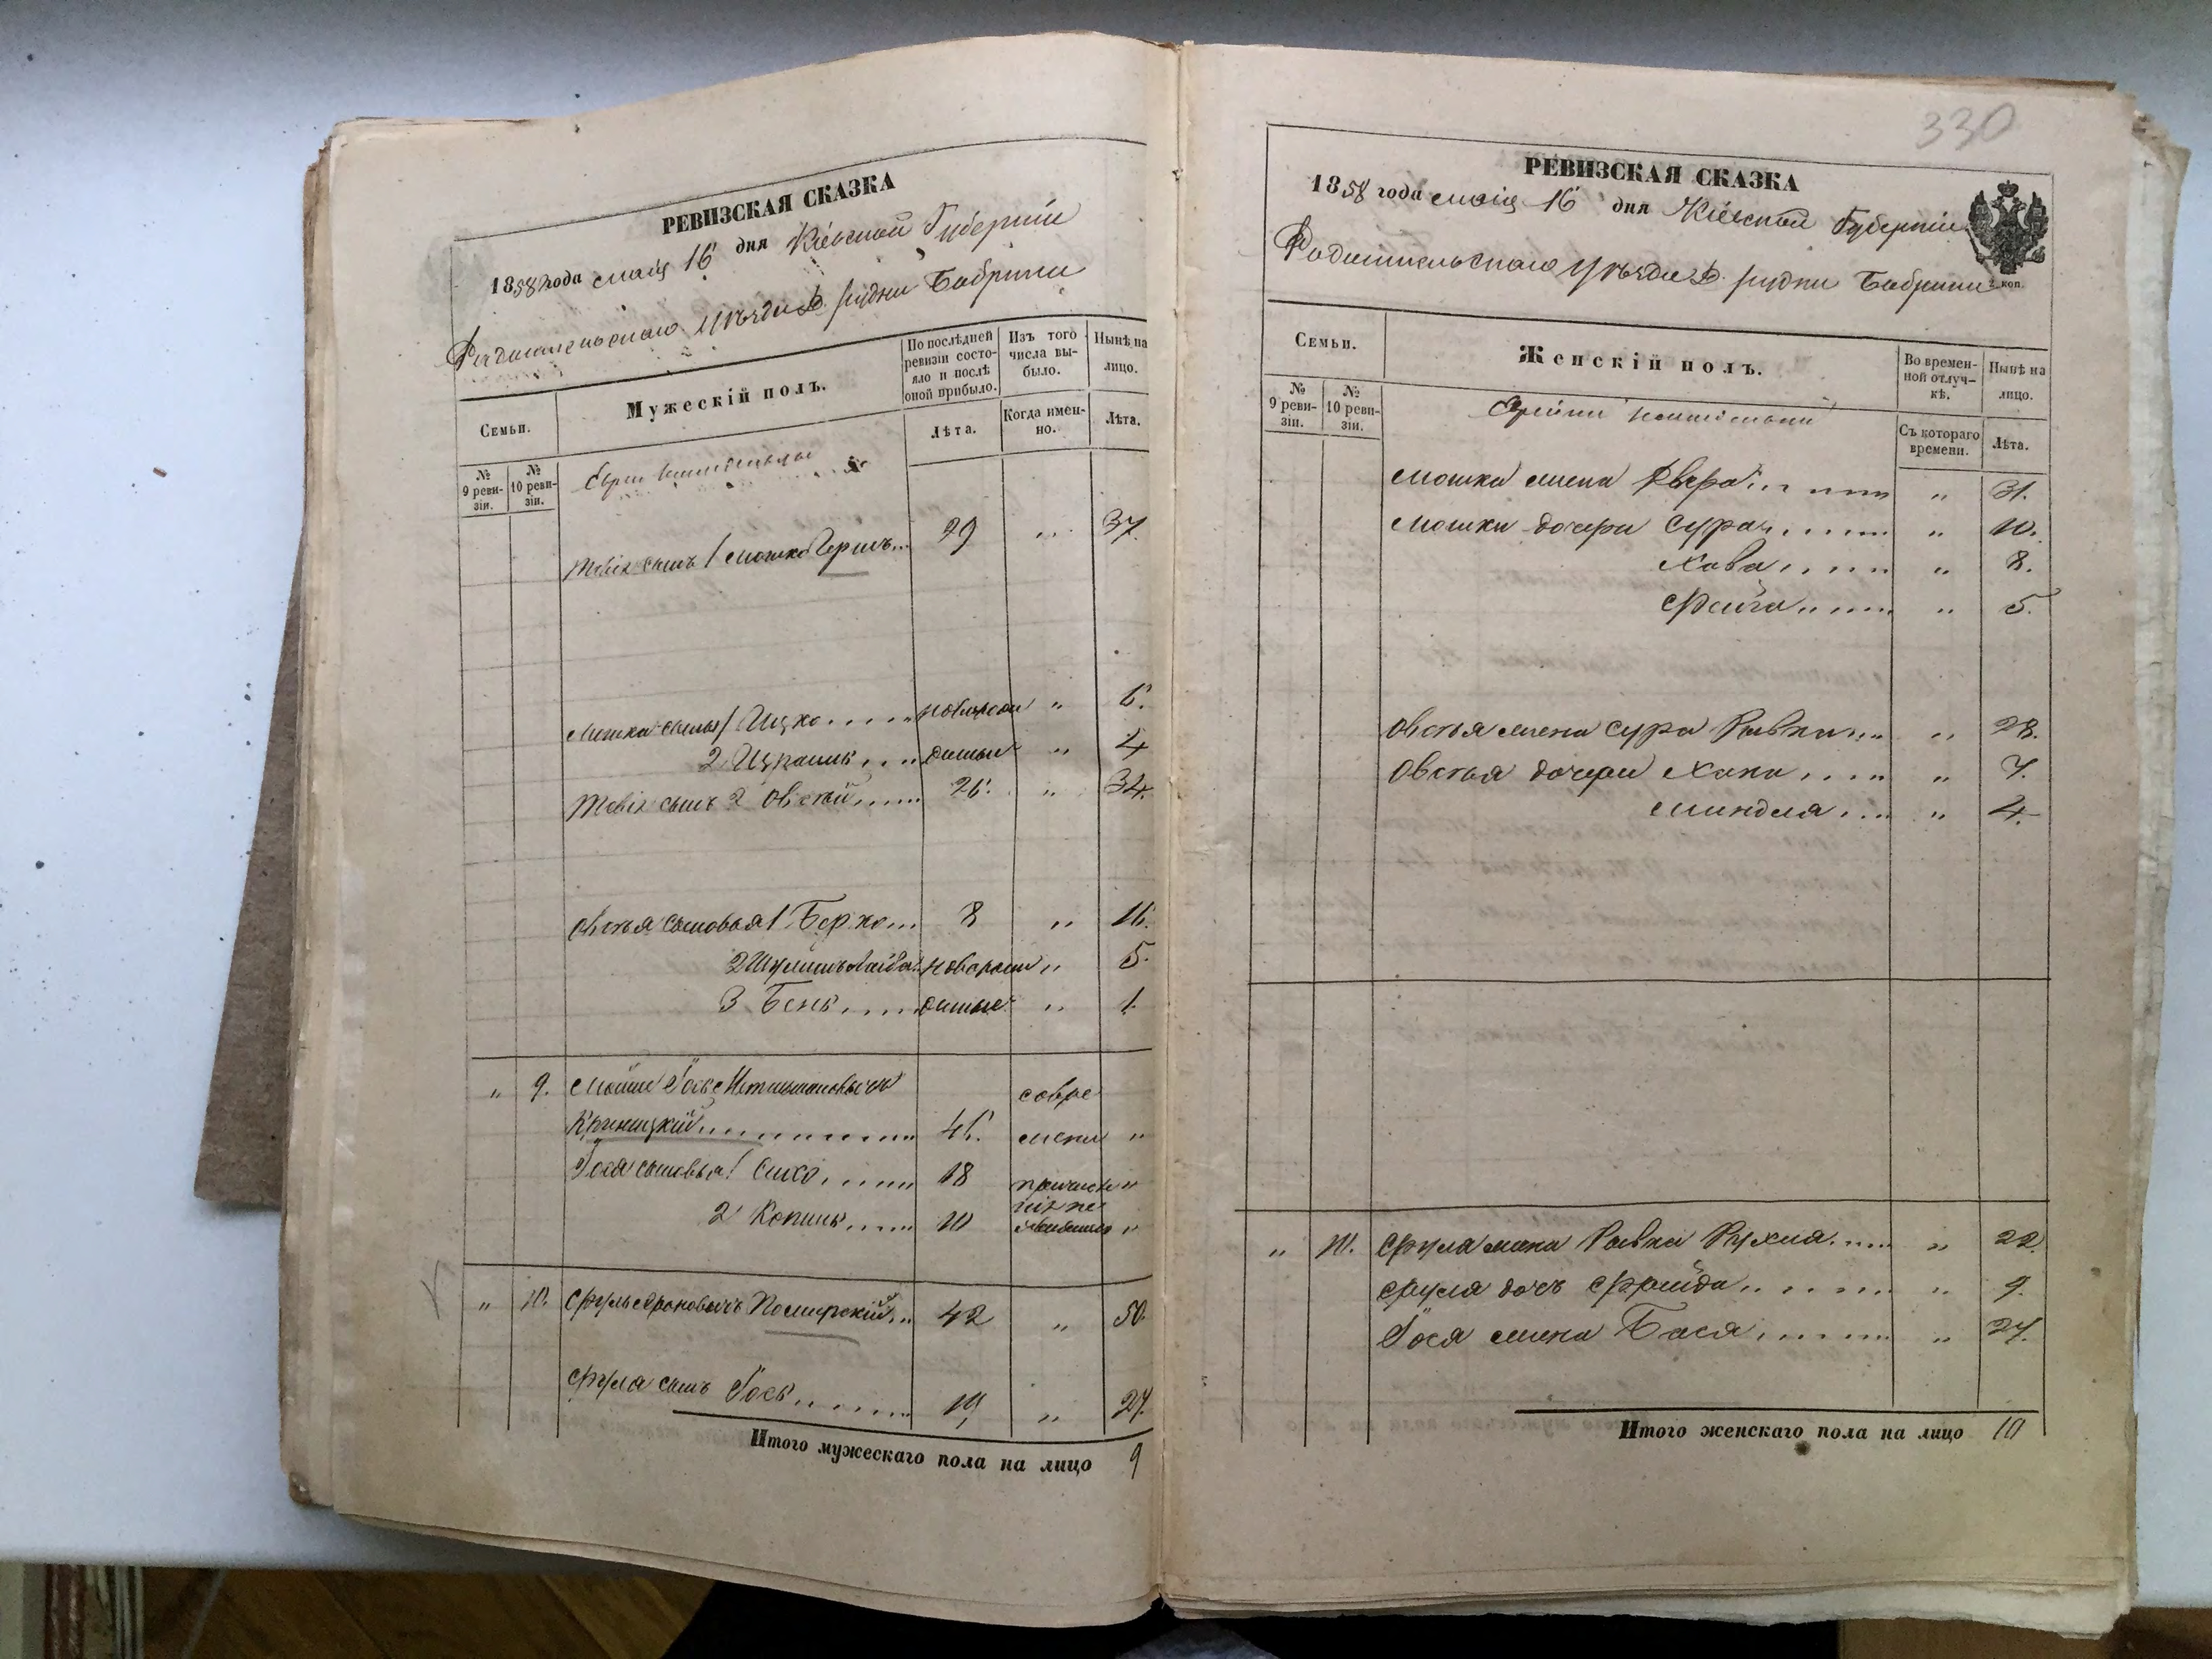 РЕВИЗСКАЯ СКАЗКА
1858 года маія 16 дня Кіевской Губерніи
Радомысльскаго уѣзда рудни Бобрици
Семьи.
№ 9 ревизіи.
№ 10 ревизіи.
Мужескій полъ.
По послѣдней ревизіи состояло и послѣ оной прибыло.
Лѣта.
Изъ того числа выбыло.
Когда именно.
Нынѣ на лицо.
Лѣта.
Евреи
Товія сынъ 1 Мошко Гершъ 29 " 37.
Мошка сыны 1 Ицко новорож " 6.
2 " 4
Товія сынъ 2 Овсѣй 26. " 34.
Овсѣя сыновья 1 Берко 8 " 16.
2 новорож " 5.
3 Бень " 1.
" 9. Мойше Іось
Криницкій 41. совре мени "
Іося сыновья 1 18 "
2 Копель 10 "
" 10. Сруль Ароновичъ 42 " 50.
Сруля сынъ Іось 19 " 27.
Итого мужескаго пола на лицо 9
330
РЕВИЗСКАЯ СКАЗКА
1858 года маія 16 дня Кіевской Губерніи
Радомысльскаго уѣзда рудни Бобрици
2 коп.
Семьи.
№ 9 ревизіи.
№ 10 ревизіи.
Женскій полъ.
Во временной отлучкѣ.
Съ котораго времени.
Нынѣ на лицо.
Лѣта.
Мошка жена Двера " 31.
Мошки дочери Сура " 10.
Хава " 8.
Фейга " 5.
Овсѣя жена Сура Ривка " 28.
Овсѣя дочери Хана " 7.
Миндля " 4.
" 10. Сруля жена Ривка Рухля " 22.
Сруля дочь Фрейда " 9.
Іося жена Бася " 27.
Итого женскаго пола на лицо 10